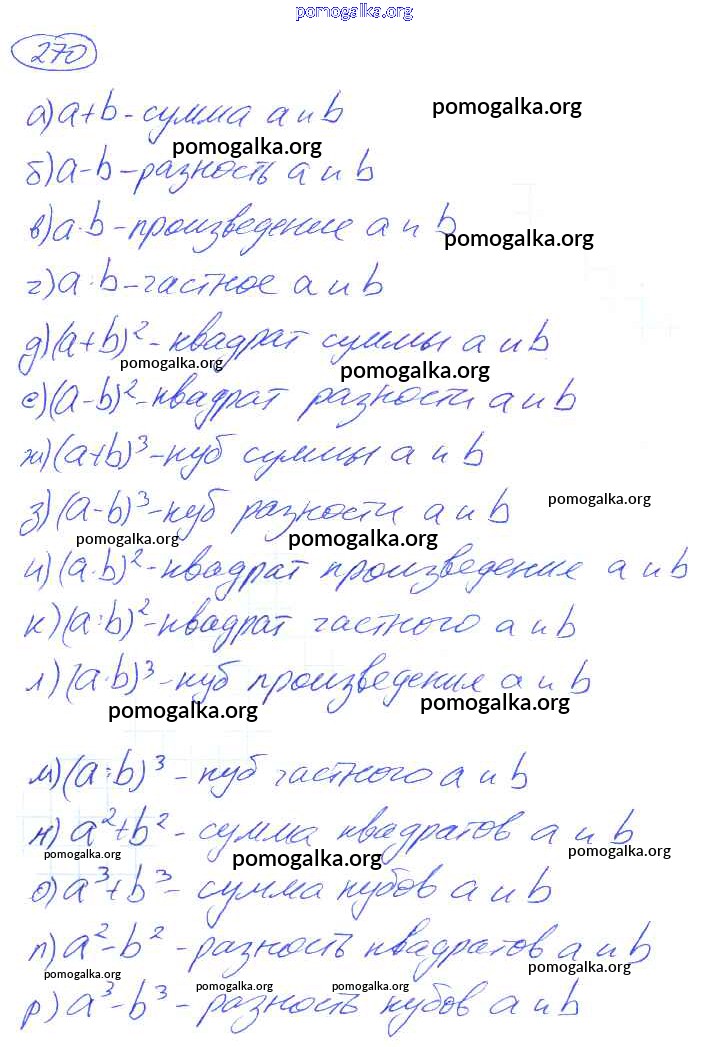 pomogalka.org
270
а) a+b - сумма a и b
pomogalka.org
pomogalka.org
б) a-b - разность a и b
в) a·b - произведение a и b
pomogalka.org
г) a:b - частное a и b
д) (a+b)² - квадрат суммы a и b
pomogalka.org
pomogalka.org
е) (a-b)² - квадрат разности a и b
ж) (a+b)³ - куб суммы a и b
pomogalka.org
з) (a-b)³ - куб разности a и b
pomogalka.org
pomogalka.org
и) (a·b)² - квадрат произведение a и b
к) (a:b)² - квадрат частного a и b
л) (a·b)³ - куб произведения a и b
pomogalka.org
pomogalka.org
м) (a:b)³ - куб частного a и b
н) a²+b² - сумма квадратов a и b
pomogalka.org
pomogalka.org
pomogalka.org
о) a³+b³ - сумма кубов a и b
п) a²-b² - разность квадратов a и b
pomogalka.org
pomogalka.org
pomogalka.org
pomogalka.org
р) a³-b³ - разность кубов a и b